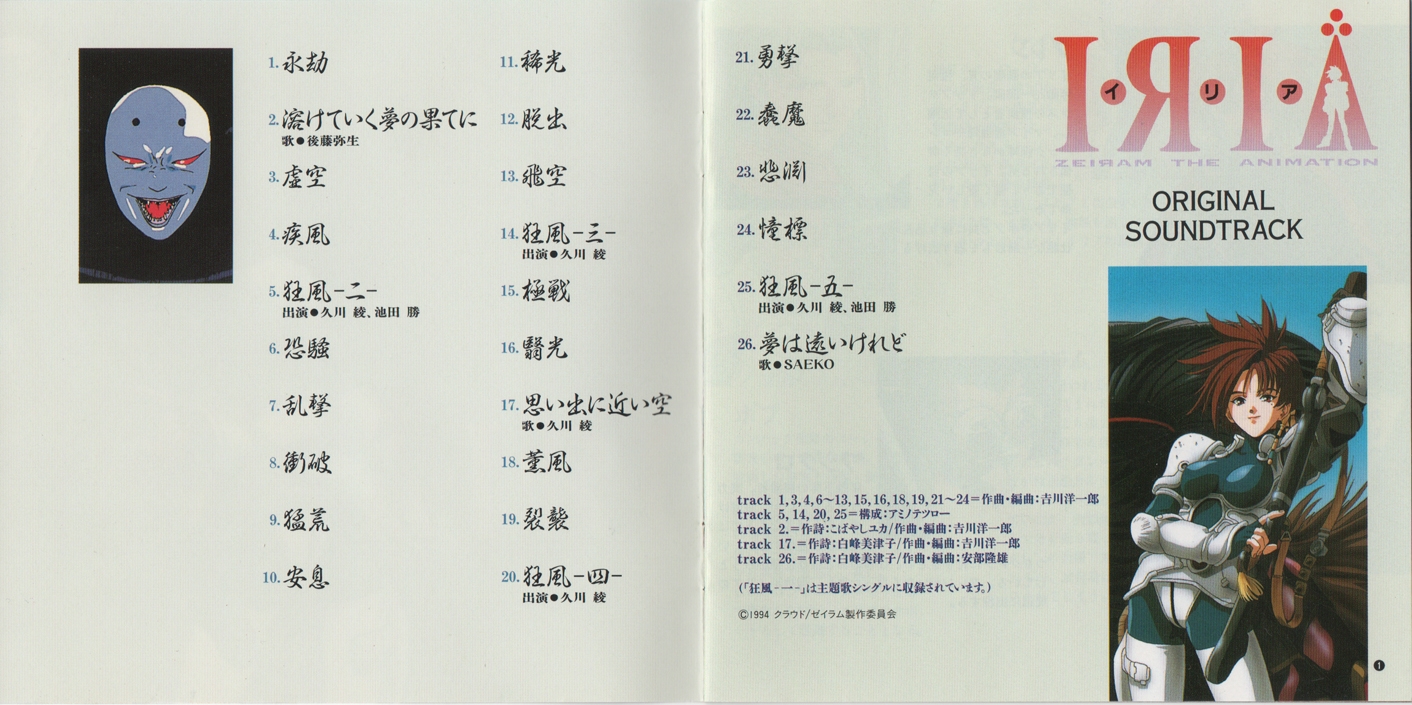 1.永劫
2.溶けていく夢の果てに
歌●後藤弥生
3.虚空
4.疾風
5.狂風-二-
出演●久川 綾、池田 勝
6.恐騒
7.乱撃
8.衝破
9.猛荒
10.安息
11.稀光
12.脱出
13.飛空
14.狂風-三-
出演●久川 綾
15.極戦
16.翳光
17.思い出に近い空
歌●久川 綾
18.薫風
19.裂襲
20.狂風-四-
出演●久川 綾
21.勇撃
22.蠢魔
23.悲淵
24.憧標
25.狂風-五-
出演●久川 綾、池田 勝
26.夢は遠いけれど
歌●SAEKO
track 1,3,4,6〜13,15,16,18,19,21〜24=作曲・編曲:吉川洋一郎
track 5,14,20,25=構成:アミノテツロー
track 2.=作詩:こばやしユカ/作曲・編曲:吉川洋一郎
track 17.=作詩:白峰美津子/作曲・編曲:吉川洋一郎
track 26.=作詩:白峰美津子/作曲・編曲:安部隆雄
(「狂風-一-」は主題歌シングルに収録されています。)
©1994 クラウド/ゼイラム製作委員会
I・Я・I・A
イ リ ア
ZEIЯAM THE ANIMATION
ORIGINAL
SOUNDTRACK
1